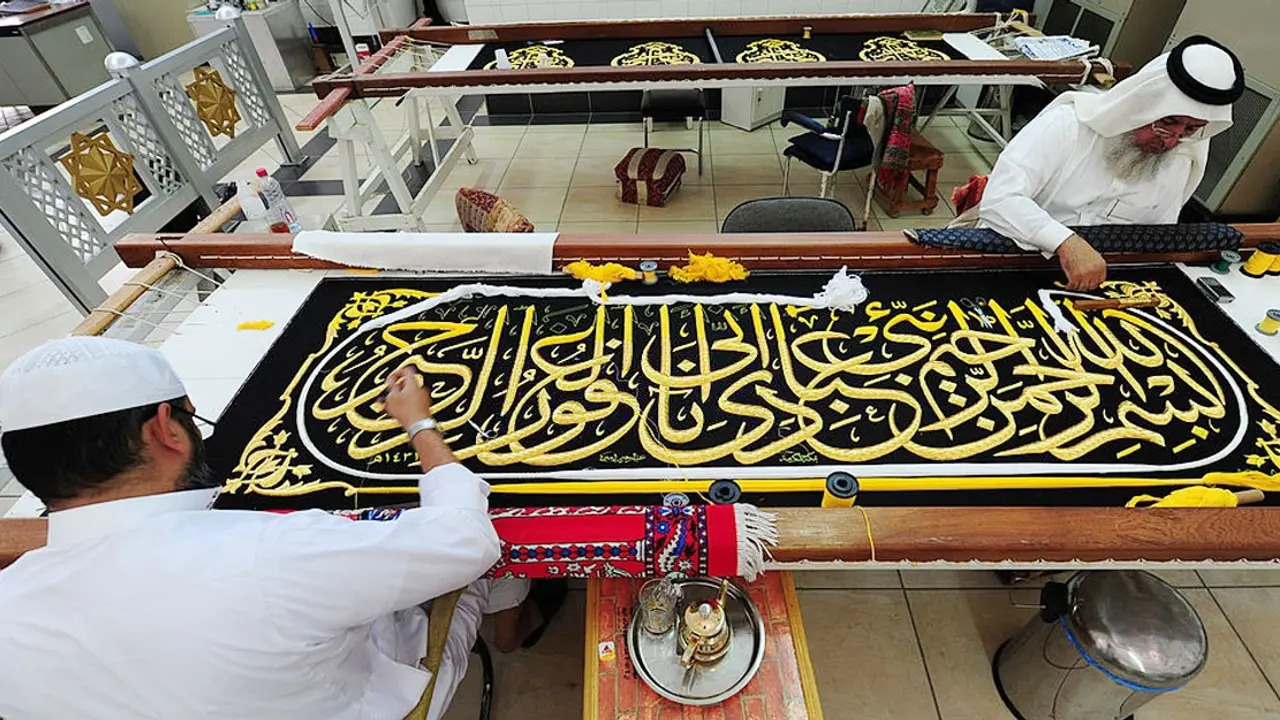 بسم الله الرحمن الرحيم نبئ عبادي أني أنا الغفور الرحيم